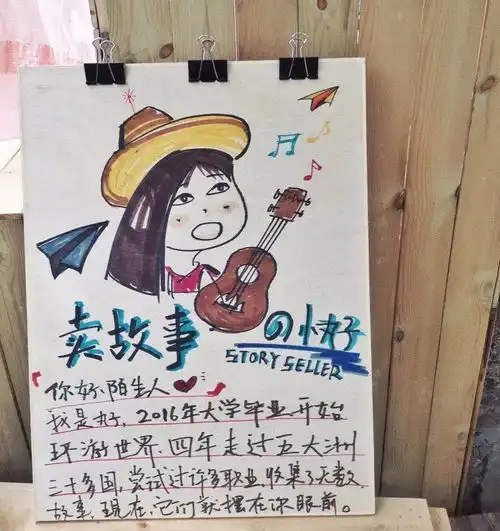 卖故事の小
STORY SELLER
你好,陌生人
我是,2016年大学毕业,开始
环游世界,四年走过五大洲
二十多国,尝试过许多职业,收集了无数
故事,现在,它们就摆在你眼前。